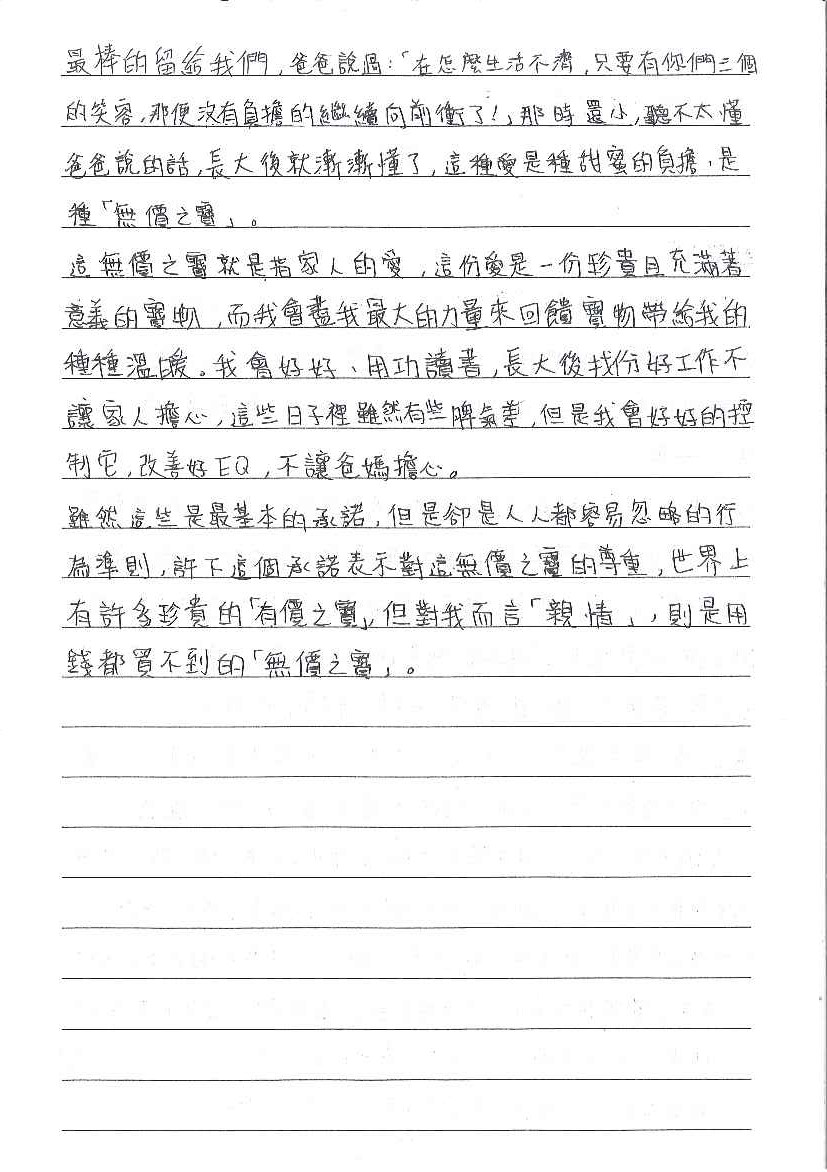 最棒的留給我們，爸爸說過：「在怎麼生活不濟，只要有你們三個
的笑容，那便沒有負擔的繼續向前衝了!」那時還小，聽不太懂
爸爸說的話，長大後就漸漸懂了，這種愛是種甜蜜的負擔、是
種「無價之寶」。
這無價之寶就是指家人的愛，這份愛是一份珍貴且充滿著
意義的寶物，而我會盡我最大的力量來回饋寶物帶給我的
種種溫暖。我會好好、用功讀書，長大後找份好工作不
讓家人擔心，這些日子裡雖然有些脾氣差，但是我會好好的控
制它，改善好EQ，不讓爸媽擔心。
雖然這些是最基本的承諾，但是卻是人人都容易忽略的行
為準則，許下這個承諾表示對這無價之寶的尊重，世界上
有許多珍貴的「有價之寶」，但對我而言「親情」，則是用
錢都買不到的「無價之寶」。